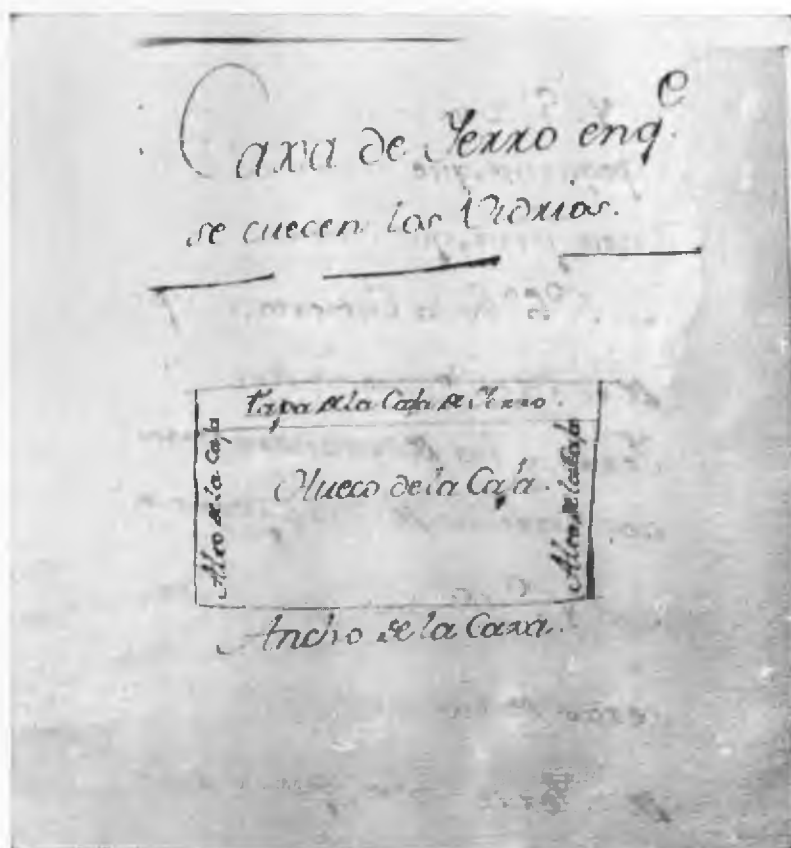 Caxa de Yerro enq.e
se cuecen los Vidrios.
Tapa de la Caja de Yerro.
Alto de la Caja
Hueco de la Caja.
Alto de la Caja
Ancho de la Caxa.